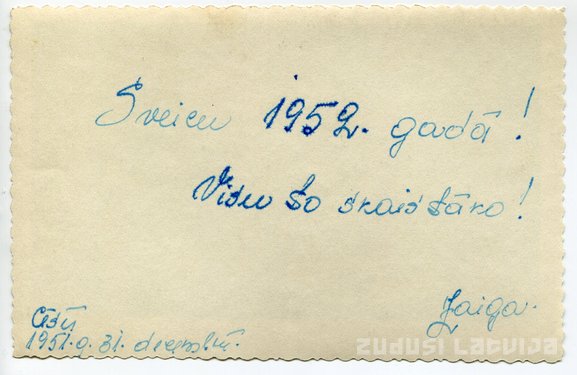 Sveicu 1952. gadā!
Visu to skaistāko!
Zaiga.
Cēsīs
1951.g. 31. decembrī.
ZUDUSI LATVIJA